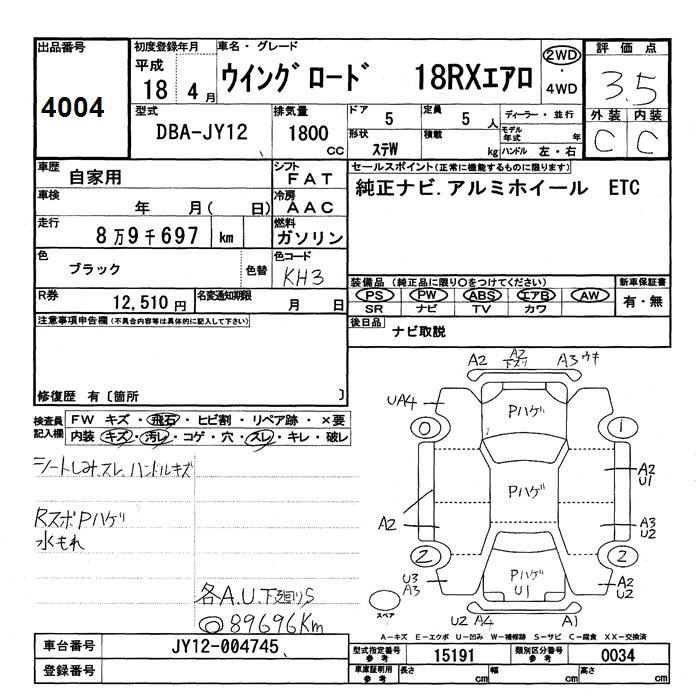 出品番号
4004
初度登録年月
平成
18 4月
車名・グレード
ウイングロード 18RXエアロ
2WD
・
4WD
評価点
3.5
外装 内装
C C
型式
DBA-JY12
排気量
1800
cc
ドア
5
定員
5 人
形状
ステW
積載
kg
ディーラー・並行
モデル年式 年
ハンドル 左・右
車歴
自家用
シフト
FAT
車検
年 月( 日)
冷房
AAC
走行
8万9千697 km
燃料
ガソリン
色
ブラック
色替
色コード
KH3
R券
12,510円
名変通知期限
月 日
セールスポイント(正常に機能するものに限ります)
純正ナビ.アルミホイール ETC
装備品(純正品に限り○をつけてください)
PS PW ABS エアB AW
SR ナビ TV カワ
新車保証書
有・無
後日品
ナビ取説
注意事項申告欄(不具合内容等は具体的に記入して下さい)
修復歴 有〔箇所 〕
検査員記入欄
FW キズ・飛石・ヒビ割・リペア跡・×要
内装 キズ・汚レ・コゲ・穴・スレ・キレ・破レ
シートしみ.スレ.ハンドルキズ
RスポPハゲ
水もれ
各A.U.下廻りS
◎89696Km
A2 A2 下スリ A3ウキ
UA4
Pハゲ
0 1
Pハゲ
A2
U1
A2
A3
U2
2 2
Pハゲ
U1
U3
A3
A2
U2
スペア
U2 A4 A1
A-キズ E-エクボ U-凹み W-補修跡 S-サビ C-腐食 XX-交換済
車台番号
JY12-004745
登録番号
型式指定番号
参考
15191
類別区分番号
参考
0034
車庫証明用
参考
長さ cm
幅 cm
高さ cm